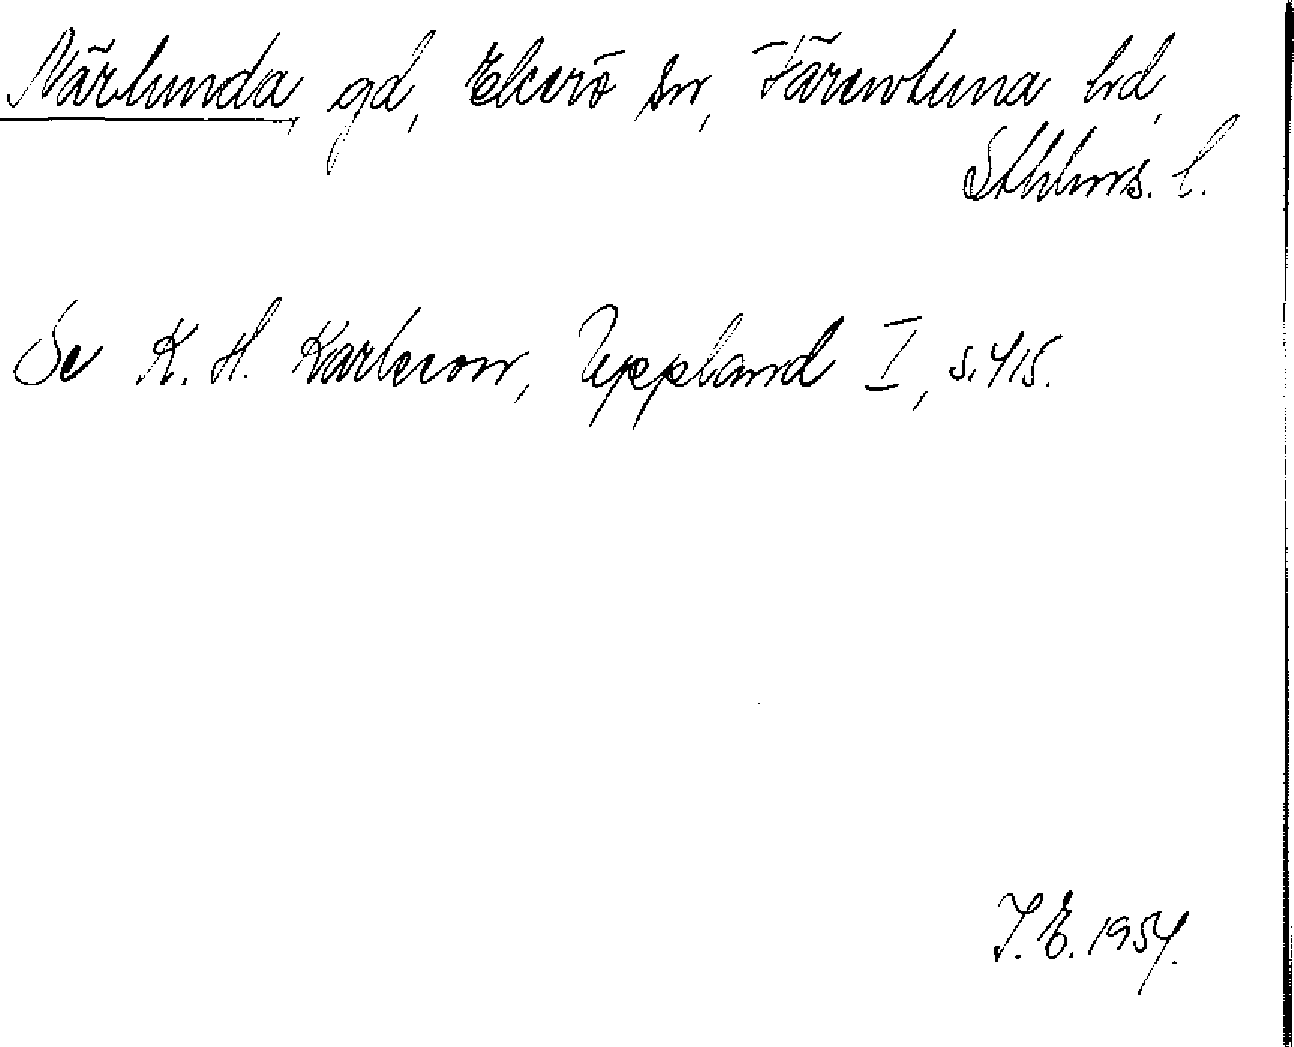 Närlunda, gd, Ekerö sn, Färentuna hd,
Sthlms. l.
Se K. H. Karlsson, Uppland I, s. 415.
I. E. 1954.